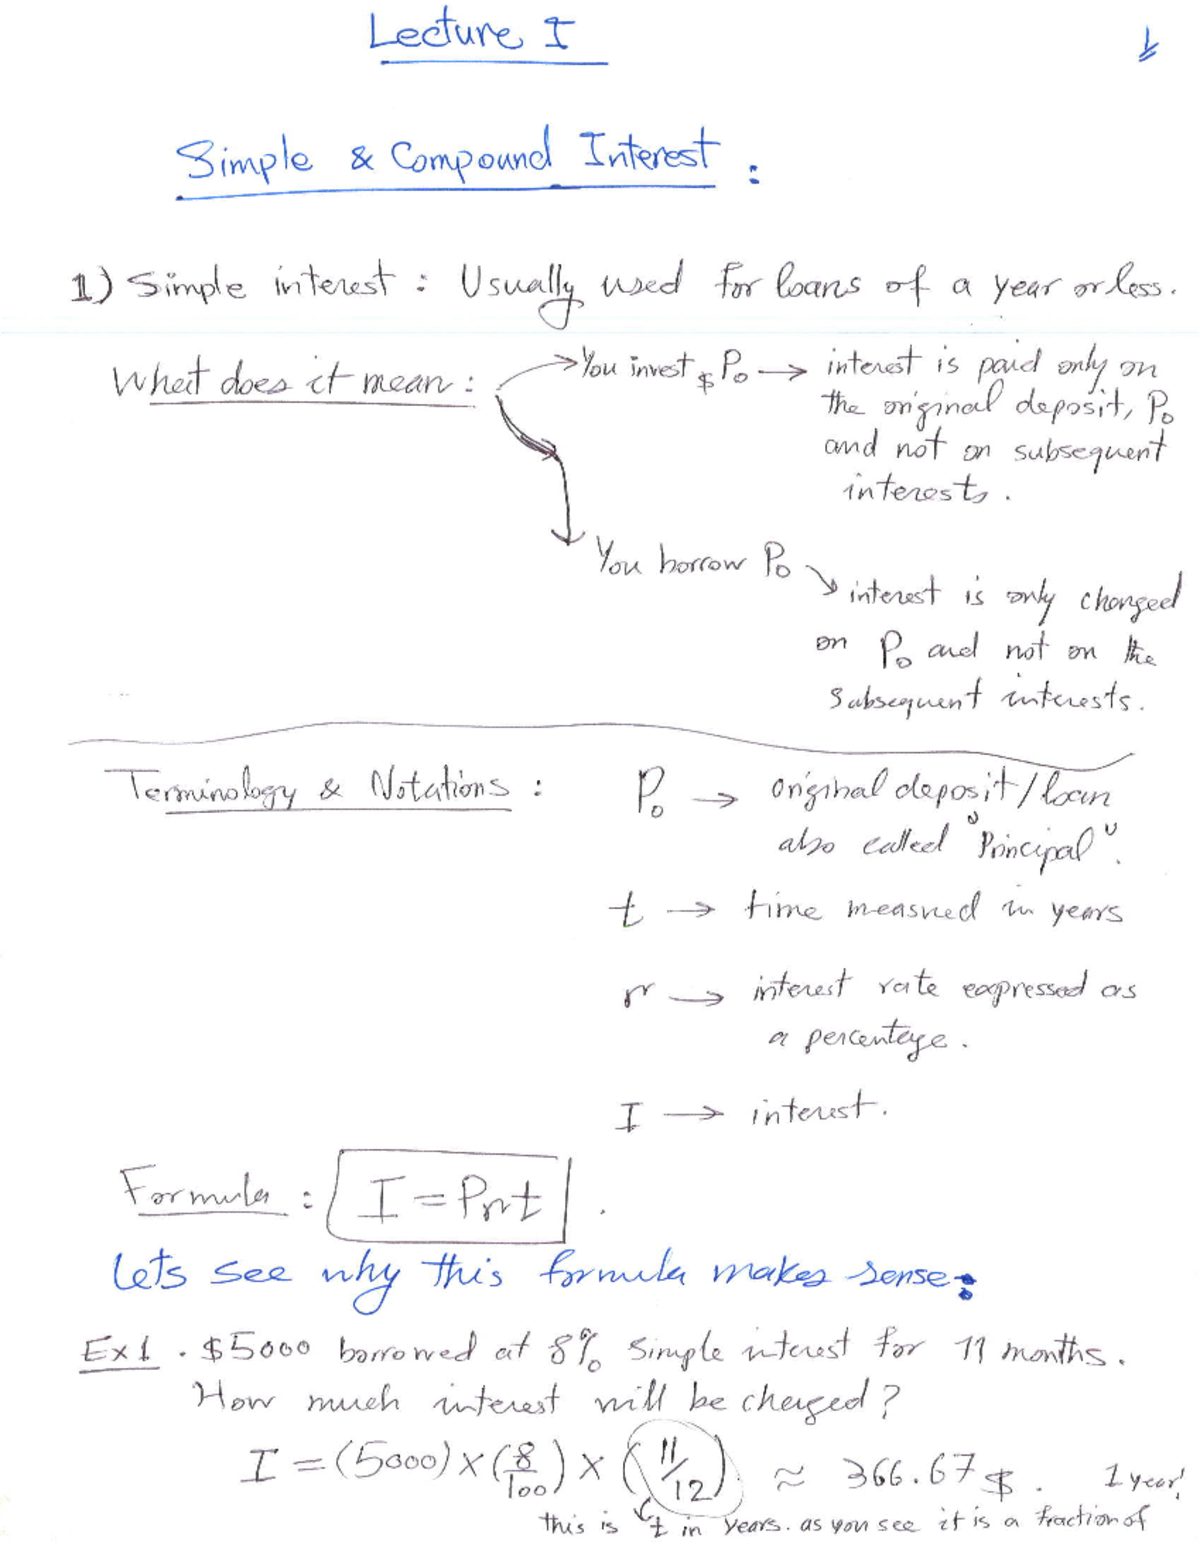 Lecture I
1
Simple & Compound Interest :
1) Simple interest : Usually used for loans of a year or less.
What does it mean :
You invest $ P₀ → interest is paid only on
the original deposit, P₀
and not on subsequent
interests.
You borrow P₀
interest is only charged
on P₀ and not on the
subsequent interests.
Terminology & Notations : P₀ → original deposit/loan
also called "Principal".
t → time measured in years
r → interest rate expressed as
a percentage.
I → interest.
Formula : I = Prt .
Lets see why this formula makes sense:
Ex1 . $5000 borrowed at 8% simple interest for 11 months.
How much interest will be charged?
I = (5000) × (8/100) × (11/12) ≈ 366.67 $ . 1 year!
this is t in years. as you see it is a fraction of